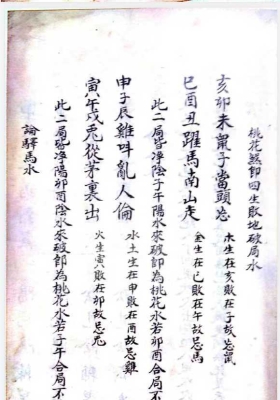 桃花煞即四生敗地破局水
亥卯未鼠子當頭忌 木生在亥敗在子故忌鼠
巳酉丑躍馬南山走 金生在巳敗在午故忌馬
此二局皆淨陰子午陽水來破即為桃花水若卯酉合局不
申子辰雞叫亂人倫 水土生在申敗在酉故忌雞
寅午戌兎從茅裏出 火生寅敗在卯故忌兎
此二局皆淨陽卯酉陰水來破即為桃花水若子午合局不
論驛馬水